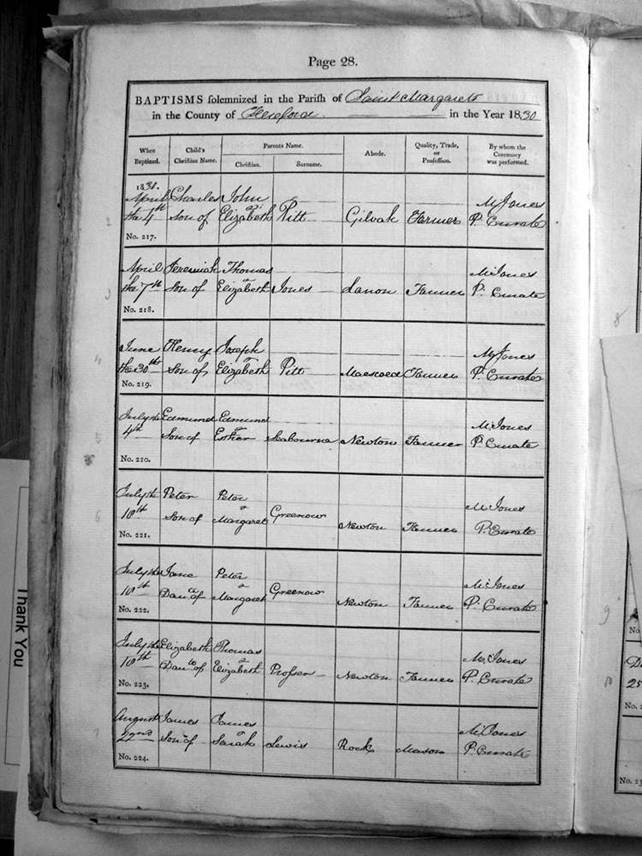 Page 28.
BAPTISMS solemnized in the Parish of Saint Margarets
in the County of Hereford in the Year 1830
When Baptized.
Child's Christian Name.
Parents Name.
Christian.
Surname.
Abode.
Quality, Trade, or Profession.
By whom the Ceremony was performed.
1830.
April the 4th
No. 217.
Charles Son of
John & Elizabeth
Pitt
Farmer
M Jones P. Curate
April the 7th
No. 218.
Jeremiah Son of
Thomas & Elizabeth
Jones
Lanon
Farmer
M Jones P. Curate
June the 30th
No. 219.
Henry Son of
Joseph & Elizabeth
Pitt
Maescoed
Farmer
M Jones P. Curate
July the 4th
No. 220.
Edmund Son of
Edmund & Esther
Seabourne
Newton
Farmer
M Jones P. Curate
July the 10th
No. 221.
Peter Son of
Peter & Margaret
Greenow
Newton
Farmer
M Jones P. Curate
July the 10th
No. 222.
Jane Dau of
Peter & Margaret
Greenow
Newton
Farmer
M Jones P. Curate
July the 10th
No. 223.
Elizabeth Dau of
Thomas & Elizabeth
Prosser
Newton
Farmer
M Jones P. Curate
August 22nd
No. 224.
James Son of
James & Sarah
Lewis
Rock
Mason
M Jones P. Curate
Thank You